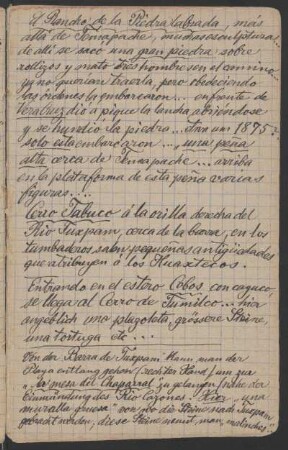 el Rancho de la Piedra labrada, más
allá de Temapache, muchas esculpturas
de allí se sacó una gran piedra sobre
rollizos y mató tres hombres en el camino
y no querian traerla, pero obedeciendo
las órdenes la embarcaron ... enfrente de
Veracruz dió a pique la lancha abriendose
y se hundió la piedra ... 1875 ?
solo esta embarcaron ... una peña
alta cerca de Temapache ... arriba
en la plataforma de esta peña varias
figuras! ...
Cerro Tabuco á la orilla derecha del
Rio Tuxpam, cerca de la barra, en los
tumbaderos salen pequeñas antigüedades
que atribuyen á los Huaxtecos.
Entrando en el estero Cobos con cayuco
se llega al Cerro de Tumilco ... hier
angeblich una grössere Steine,
una tortuga etc ...
Von der Barra de Tuxpam kann man der
Playa entlang gehen (rechter Hand) um zu
"la mesa del Chaparral" zu gelangen (nahe der
Einmündung des Rio Cazones) "una
muralla gruesa" von wo die Steine nach Tuxpam
gebracht werden, diese Steine nennt man